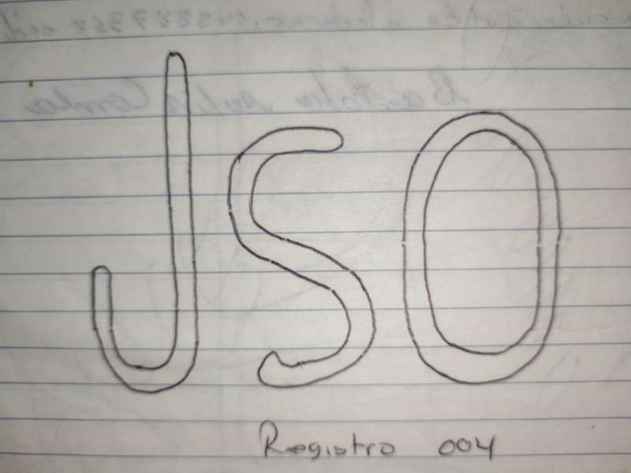 JSO
Registro 004